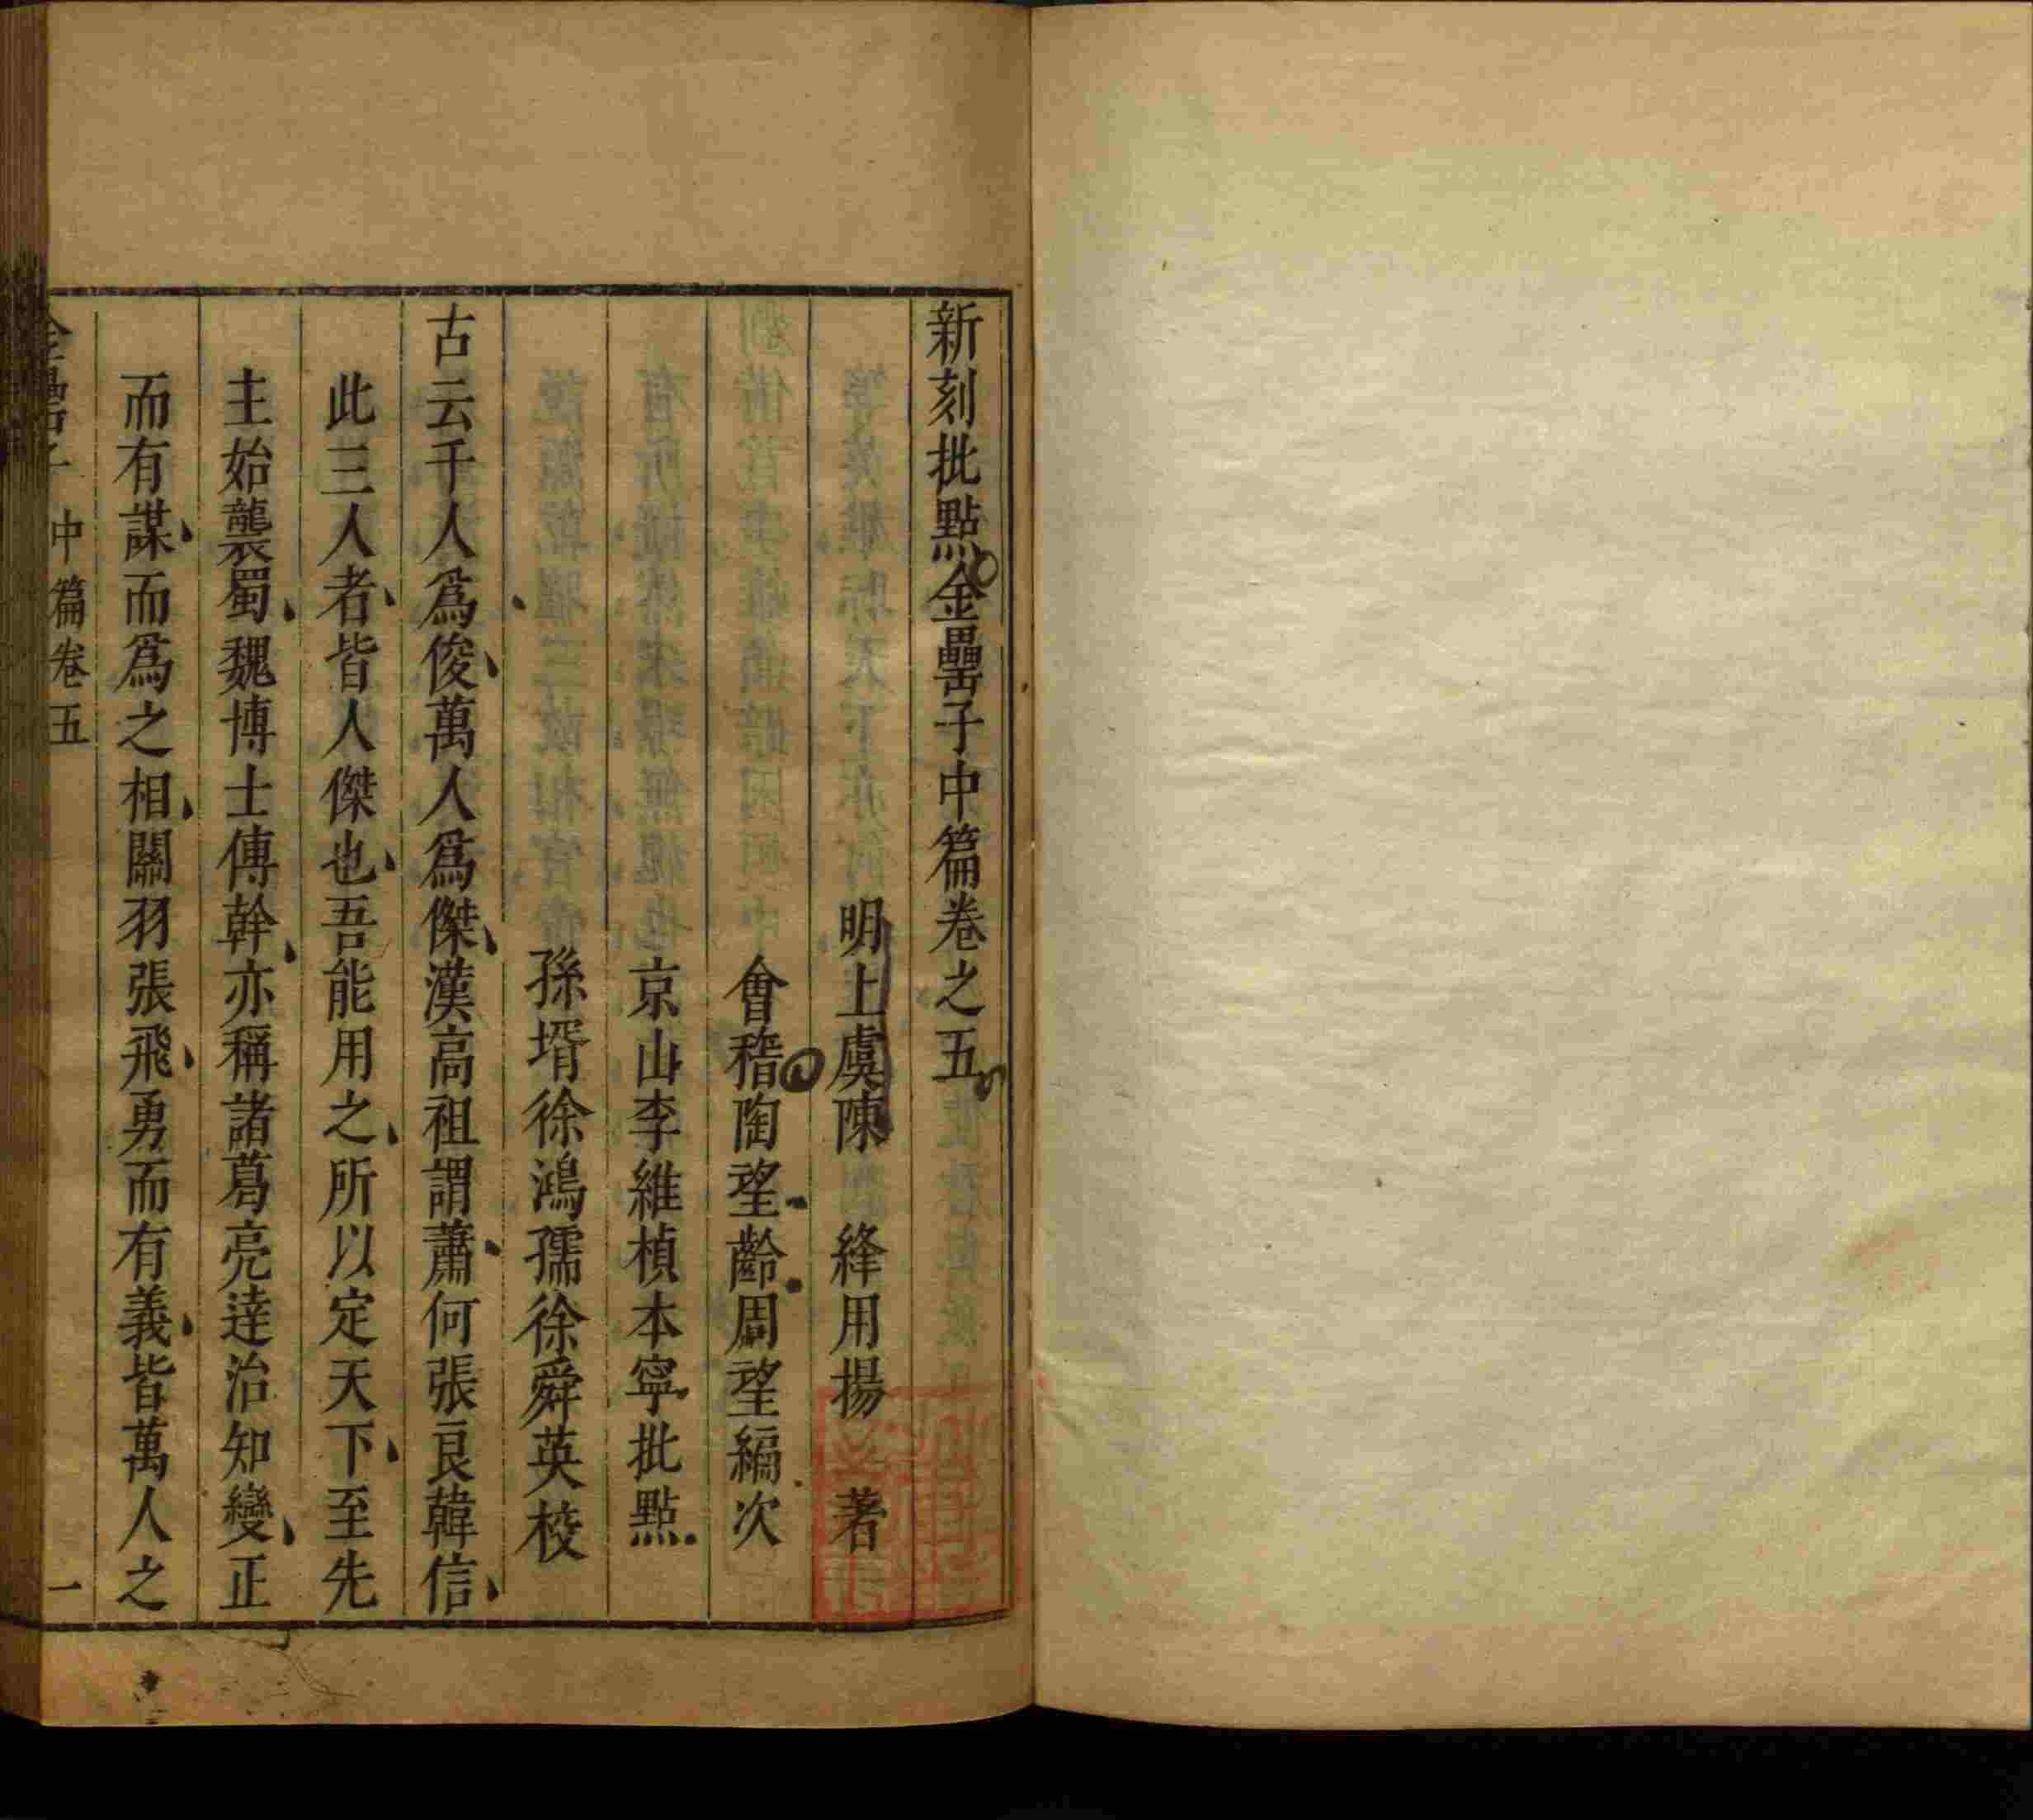 新刻批點金罍子中篇卷之五
明上虞陳　絳用揚　著
會稽陶望齡周望編次
京山李維楨本寧批點
孫壻徐鴻孺徐舜英校
古云千人爲俊萬人爲傑漢高祖謂蕭何張良韓信
此三人者皆人傑也吾能用之所以定天下至先
主始襲蜀魏博士傅幹亦稱諸葛亮達治知變正
而有謀而爲之相關羽張飛勇而有義皆萬人之
金罍子　中篇卷五　一